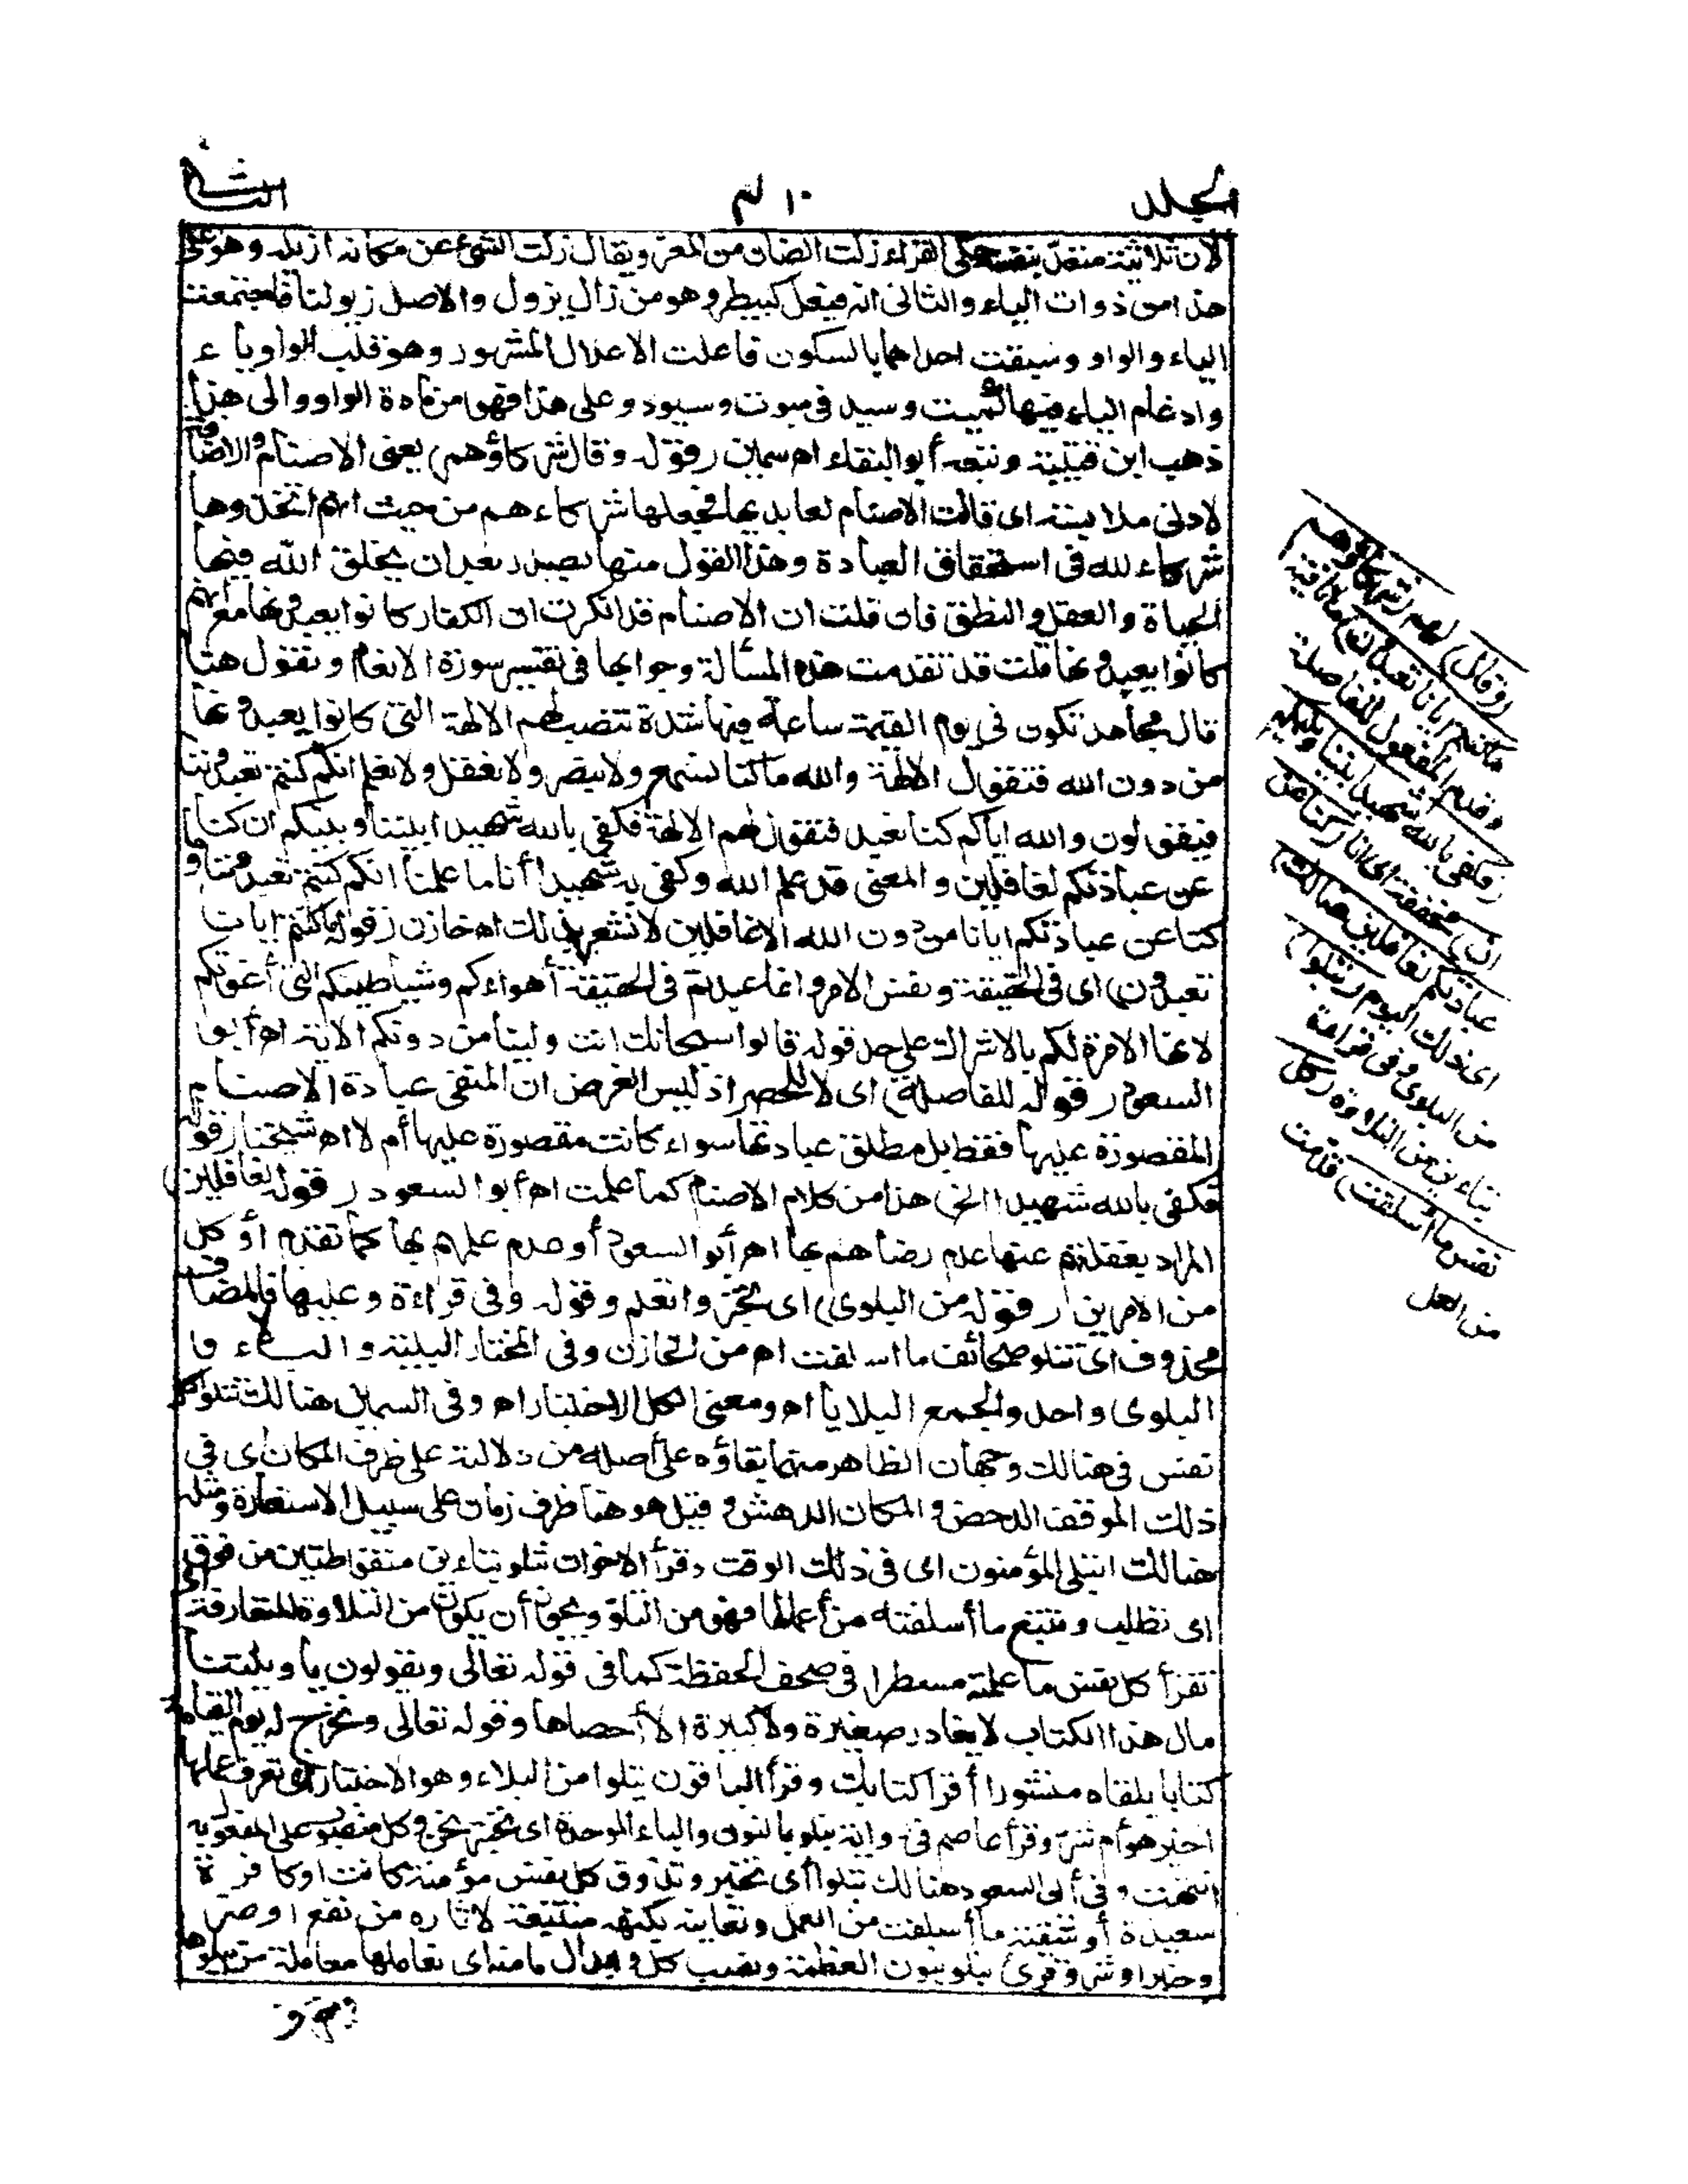 المجلد
١٠ لم
الثانى
لان ثلاثيه متعد بنفسه حكى الفراء زلت الضان من المعز ويقال زلت الشئ عن مكانه ازيله وهو على
هذا من ذوات الياء والثانى انه فيعل كبيطر وهو من زال يزول والاصل زيولنا فاجتمعت
الياء والواو وسبقت احداهما بالسكون فاعلت الاعلال المشهور وهو قلب الواو ياء
وادغام الياء فيها كميت وسيد فى ميوت وسيود وعلى هذا فهو من مادة الواو والى هذا
ذهب ابن قتيبة وتبعه أبو البقاء اه سمين (قوله وقال شركاؤهم) يعنى الاصنام والاضافة
لادنى ملابسة اى قالت الاصنام لعابديها فجعلها شركاءهم من حيث انهم اتخذوها
شركاء لله فى استحقاق العبادة وهذا القول منها يصدر بعد ان يخلق الله فيها
الحياة والعقل والنطق فان قلت ان الاصنام قد انكرت ان الكفار كانوا يعبدونها مع انهم
كانوا يعبدونها قلت قد تقدمت هذه المسألة وجوابها فى تفسير سورة الانعام ونقول هنا
قال مجاهد تكون فى يوم القيمة ساعة فيها شدة تنصب لهم الالهة التى كانوا يعبدونها
من دون الله فتقول الالهة والله ما كنا نسمع ولا نبصر ولا نعقل ولا نعلم انكم كنتم تعبدوننا
فيقولون والله اياكم كنا نعبد فتقول لهم الالهة فكفى بالله شهيدا بيننا وبينكم ان كنا
عن عبادتكم لغافلين والمعنى قد علم الله وكفى به شهيدا أنا ما علمنا انكم كنتم تعبدوننا وما
كنا عن عبادتكم ايانا من دون الله الا غافلين لا نشعر بذلك اه خازن (قوله ما كنتم ايانا
تعبدون) اى فى الحقيقة ونفس الامر وانما عبدتم فى الحقيقة أهواءكم وشياطينكم التى أغوتكم
لانها الآمرة لكم بالاشراك على حد قوله قالوا سبحانك انت ولينا من دونكم الآية اه أبو
السعود (قوله للفاصلة) اى لا للحصر اذ ليس الغرض ان المنفى عبادة الاصنام
المقصورة عليها فقط بل مطلق عبادتها سواء كانت مقصورة عليها أم لا اه شيخنا (قوله
فكفى بالله شهيدا الخ) هذا من كلام الاصنام كما علمت اه أبو السعود (قوله لغافلين)
المراد بغفلتهم عنها عدم رضاهم بها اه أبو السعود أو عدم علمهم بها كما تقدم أو كل
من الامرين (قوله من البلوى) اى تختبر وتعلم وقوله وفى قراءة وعليها فالمضاف
محذوف اى تتلو صحائف ما اسلفت اه من الخازن وفى المختار البلية والبلاء وا
البلوى واحد والجمع البلايا اه ومعنى الكل الاختبار اه وفى السمين هنالك تتلو كل
نفس فى هنالك وجهان الظاهر منهما بقاؤه على أصله من دلالته على ظرف المكان اى فى
ذلك الموقف الدحض والمكان الدهش وقيل هو هنا ظرف زمان على سبيل الاستعارة ومثله
هنالك ابتلى المؤمنون اى فى ذلك الوقت وقرأ الاخوان تتلو بتاءين منقوطتين من فوق اى
اى تطلب وتتبع ما أسلفته من أعمالها فهو من التلو ويجوز أن يكون من التلاوة المتعارفة
تقرأ كل نفس ما عملته مسطرا فى صحف الحفظة كما فى قوله تعالى ويقولون يا ويلتنا
مال هذا الكتاب لا يغادر صغيرة ولا كبيرة الا أحصاها وقوله تعالى ونخرج له يوم القيامة
كتابا يلقاه منشورا أقرا كتابك وقرأ الباقون تبلوا من البلاء وهو الاختبار اى تعرف عملها
اخير هو أم شر وقرأ عاصم فى رواية نبلو بالنون والباء الموحدة اى نختبر نحن وكل منصوب على المفعول به
انتهت وفى أبى السعود هنالك تبلوا أى تختبر وتذوق كل نفس مؤمنة كانت او كافرة
سعيدة أو شقية ما أسلفت من العمل وتعاينه بكنهه متتبعة لآثاره من نفع او ضر
وخير او شر وقرئ نبلو بنون العظمة ونصب كل وابدال ما منه اى نعاملها معاملة من يبلوها
(وقال) لهم (شركاؤهم
ما كنتم ايانا تعبدون) ما نافية
وقدم المفعول للفاصلة
(فكفى بالله شهيدا بيننا وبينكم
ان) مخففة اى انا (كنا عن
عبادتكم لغافلين هنالك)
اى ذلك اليوم (تبلوا)
من البلوى وفى قراءة
بتاءين من التلاوة (كل
نفس ما أسلفت) قدمت
من العمل